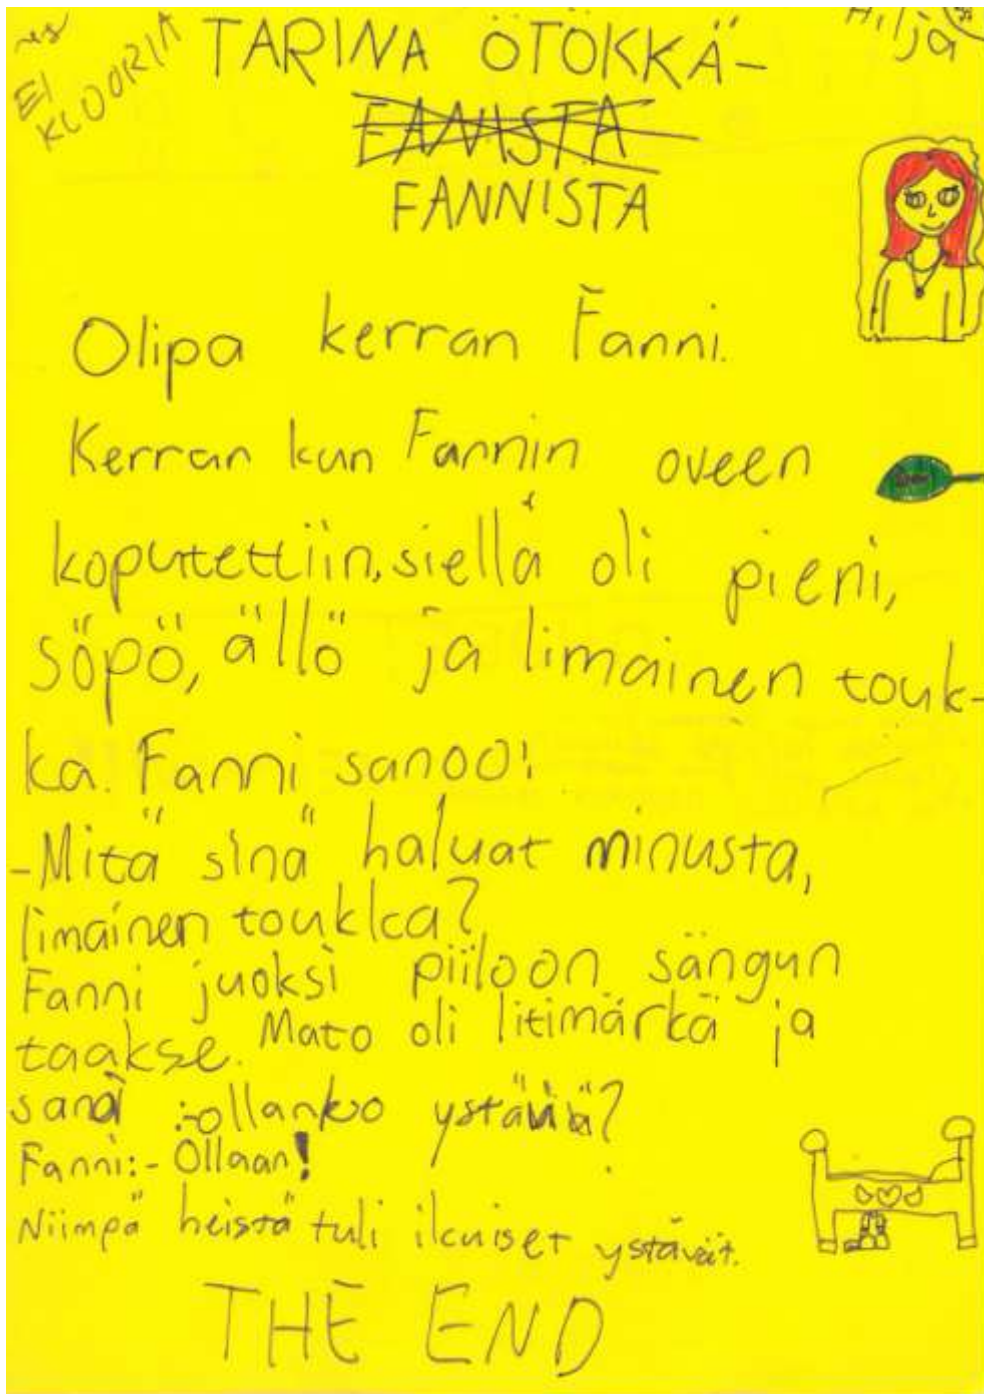 EI
KLOORIA
Hilja
TARINA ÖTÖKKÄ-
FANISTA
FANNISTA
Olipa kerran Fanni.
Kerran kun Fannin oveen
koputettiin, siellä oli pieni,
söpö, ällö ja limainen touk-
ka. Fanni sanoo:
-Mitä sinä haluat minusta,
limainen toukka?
Fanni juoksi piiloon sängun
taakse. Mato oli litimärkä ja
sanoi :-ollanko ystäviä?
Fanni:- Ollaan!
Niimpä heistä tuli ikuiset ystävät.
THE END